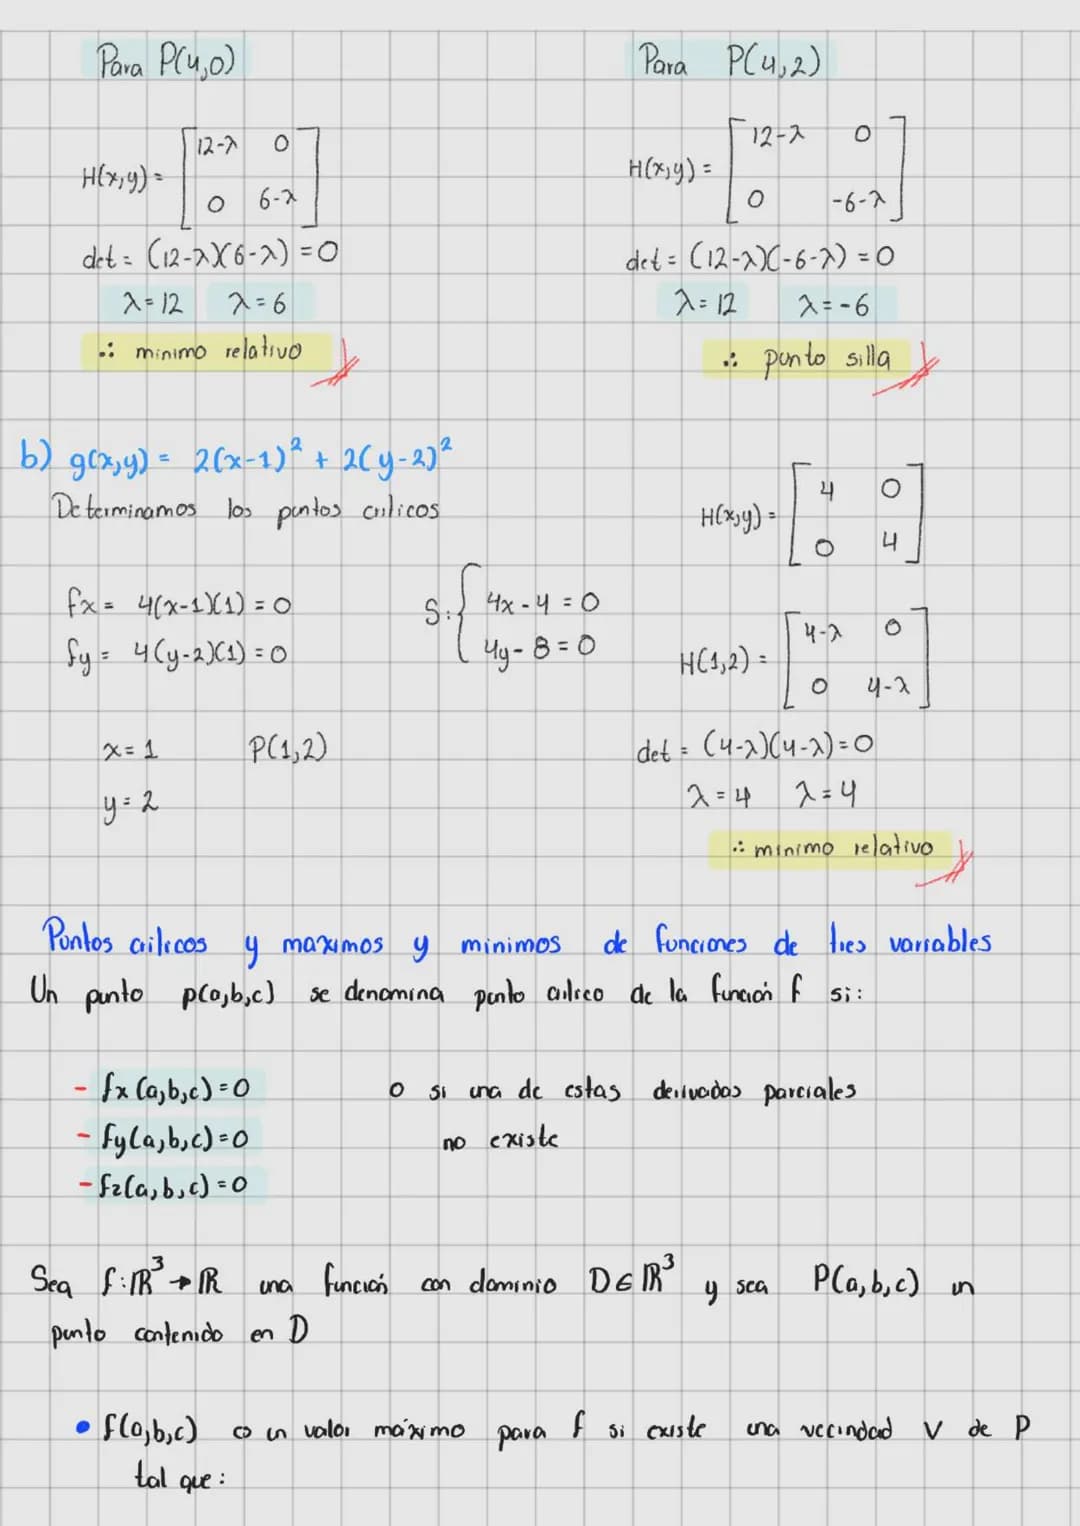 Para P(4,0)
H(x,y) = [12-λ 0
0 6-λ]
det = (12-λ)(6-λ) = 0
λ = 12 λ = 6
∴ minimo relativo
Para P(4,2)
H(x,y) = [12-λ 0
0 -6-λ]
det = (12-λ)(-6-λ) = 0
λ = 12 λ = -6
∴ punto silla
b) g(x,y) = 2(x-1)² + 2(y-2)²
Determinamos los puntos criticos
fx = 4(x-1)(1) = 0
fy = 4(y-2)(1) = 0
S: { 4x - 4 = 0
4y - 8 = 0
x = 1 P(1,2)
y = 2
H(x,y) = [4 0
0 4]
H(1,2) = [4-λ 0
0 4-λ]
det = (4-λ)(4-λ) = 0
λ = 4 λ = 4
∴ minimo relativo
Puntos criticos y maximos y minimos de funciones de tres variables
Un punto p(a,b,c) se denomina punto critico de la función f si:
- fx (a,b,c) = 0 o si una de estas derivadas parciales
- fy(a,b,c) = 0 no existe
- fz(a,b,c) = 0
Sea f: ℝ³ → ℝ una función con dominio D ∈ ℝ³ y sea P(a,b,c) un
punto contenido en D
• f(a,b,c) es un valor máximo para f si existe una vecindad V de P
tal que: